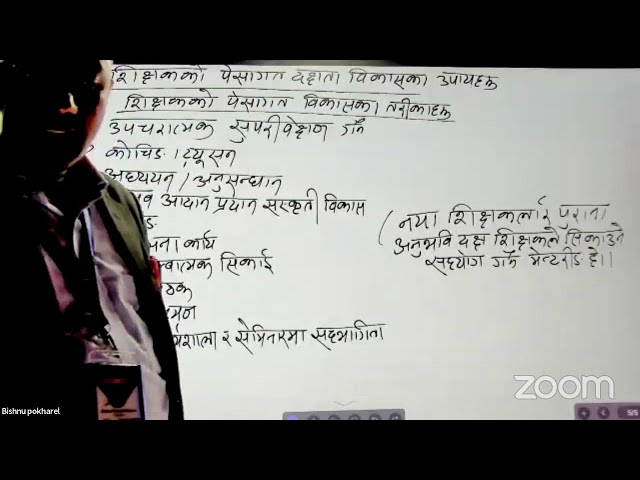 शिक्षकको पेसागत दक्षता विकासका उपायहरु
शिक्षकको पेसागत विकासका तरीकाहरु
उपचरात्मक सुपरीवेक्षण गर्ने
कोचिङ / ट्यूसन
अध्ययन / अनुसन्धान
आदान प्रदान संस्कृती विकास
कार्य
सिकाई
र सेमिनारमा सहभागिता
(नया शिक्षकलाई पुराना
अनुभवि दक्ष शिक्षकले सिकाउने
सहयोग गर्ने मेन्टरीङ हो।।
Bishnu pokharel
zoom
5/5